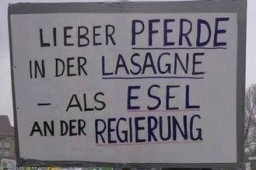 LIEBER PFERDE
IN DER LASAGNE
– ALS ESEL
AN DER REGIERUNG